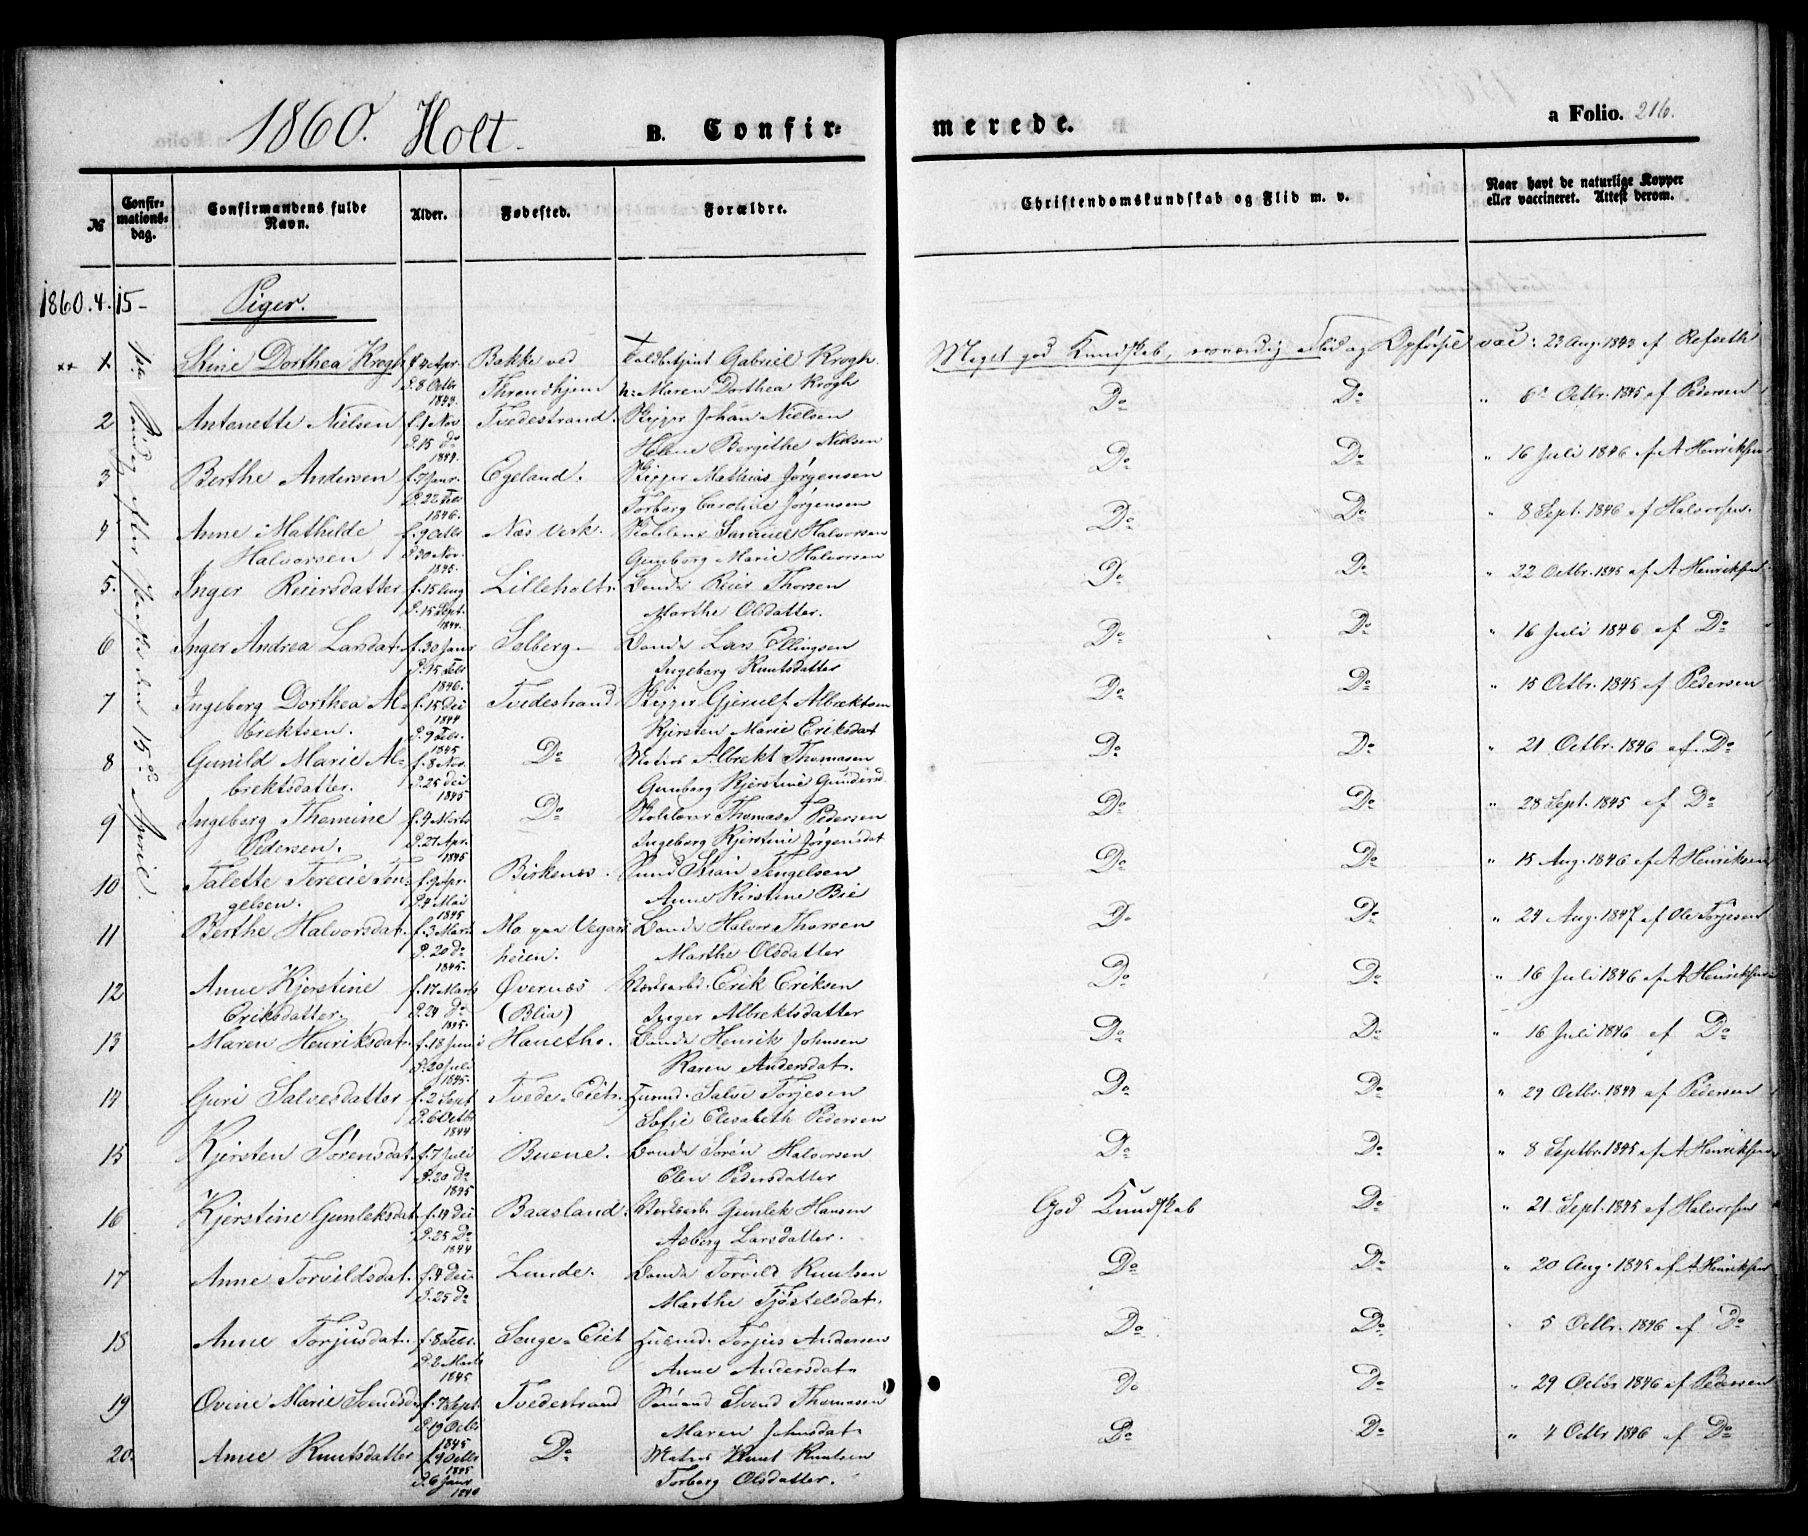 1860. Holt. B. Confir= merede. a Folio. 216.
№ Confir= mations= dag. Confirmandens fulde Navn. Alder. Fødested. Forældre. Christendomskundskab og Flid m. v. Naar havt de naturlige Kopper eller vaccineret. Attest derom.
1860. 4. 15- Piger.
1ste Søndag efter Paaske den 15de April
1. Stine Dorthea Krogh f. 4 Apr. Bakke ved Gabriel Krogh Meget god Kundskab, og vac: 23 Aug. 1843 af Refseth
d. 8 Octbr 1843. Throndhjem Maren Dorthea Krogh
2 Antonette Nielsen f. 1 Nov Tvedestrand. Skipper Johan Nielsen Do Do " 6 Octbr. 1845 af Pedersen
d. 15 Do 1844. Helene Bergithe Nielsen
3 Berthe Andersen f. 7 Janr. Egeland. Skipper Mathias Jørgensen Do Do " 16 Juli 1846 af A Henriksen
d. 22 Feb 1846. Torborg Caroline Jørgensen
4 Anne Mathilde f. 9 Octbr Næs Verk. Samuel Halvorsen Do Do " 8 Sept. 1846 af Halvorsen.
Halvorsen d. 30 Nov. 1845. Gunborg Marie Halvorsen
5. Inger Reiersdatter f. 15 Aug Lilleholt. Bonde Reier Thorsen Do Do " 22 Octbr. 1845 af A Henriksen
d. 15 Sept. 1844. Marthe Olsdatter.
6 Inger Andrea Larsdat. f. 30 Janr Solberg. Bonde Lars Ellingsen Do Do " 16 Juli 1846 af Do
d. 15 Feb 1846. Ingeborg Knutsdatter
7 Ingeborg Dorthea Al= f. 15 Dec 1844 Tvedestrand Skipper Gjerulf Albrektsen Do Do " 15 Octbr. 1845 af Pedersen
brektsen. d. 9 Feb. 1845 Kjersten Marie Eriksdat
8 Gunild Marie Al= f. 8 Nov. Do Matros Albrekt Thomasen Do Do " 21 Octbr. 1846 af Do
brektsdatter. d. 25 Dec 1845 Gunborg Kjerstine Gundersd
9 Ingeborg Thomine f. 4 Marts Do Thomas T Pedersen Do Do " 28 Sept. 1845 af Do
Pedersen. d. 27 Apr. 1845 Ingeborg Kjerstine Jørgensdat
10 Talette Terecie Ten= f. 9 Apr. Birkenes. Stian Tengelsen Do Do " 15 Aug. 1846 af A Henriksen
gelsen. d. 4 Mai 1845 Anne Kirstine Bie
11 Berthe Halvorsdat. f. 3 Marts Mo paa Vegars Bonde Halvor Thorsen Do Do " 24 Aug. 1847 af Ole Torjesen
d. 20 Do 1845. heien. Marthe Olsdatter
12 Anne Kjerstine f. 17 Marts Øvernæs Erik Eriksen Do Do " 16 Juli 1846 af A Henriksen
Eriksdatter. d. 24 Do 1845. (Blia) Inger Albrektsdatter
13 Maren Henriksdat. f. 18 Juni Hanetho. Bonde Henrik Johnsen Do Do " 16 Juli 1846 af Do
d. 20 Juli 1845. Karen Andersdat.
14 Guri Salvesdatter f. 2 Sept Tvede-Eiet. Salve Torjesen Do Do " 29 Octbr. 1844 af Pedersen
d. 6 Octbr 1844 Sofie Elesabeth Pedersen
15 Kjersten Sørensdat. f. 7 Juli Buene. Bonde Søren Halvorsen Do Do " 8 Septbr. 1845 af A Henriksen
d. 20 Do 1845 Elen Pedersdatter
16 Kjerstine Gunleksdat. f. 14 Dec Baasland. Gunlek Hansen God Kundskab Do " 21 Sept. 1845 af Halvorsen
d. 25 Do 1844 Asberg Larsdatter.
17 Anne Torvildsdat. f. 4 Dec Lunde. Bonde Torvild Knutsen Do Do " 20 Aug. 1845 af A Henriksen
d. 25 Do Marthe Tjøstelsdat.
18 Anne Torjusdat. f. 8 Febr. Songe-Eiet Husmd. Torjus Andersen Do Do 5 Octbr. 1846 af Do
d. 2 Marts 1845 Anne Andersdat
19 Ovine Marie Svendsd. f. 7 Sept. Tvedestrand Sømand Svend Thomasen Do Do " 29 Octbr 1846 af Pedersen
d. 19 Octbr 1845 Maren Johnsdat
20. Anne Knutsdatter f. 4 Octbr 1845 Do Matros Knut Knutsen Do Do " 4 Octbr 1846 af Do
d. 6 Janr 1846 Torborg Olsdatter.